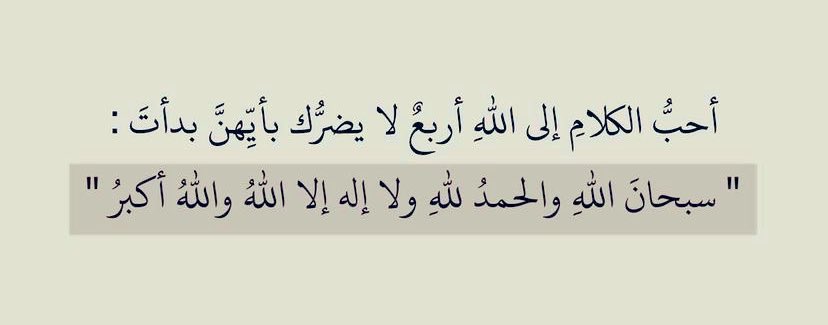 أحبُّ الكلامِ إلى اللهِ أربعٌ لا يضرُّك بأيِّهنَّ بدأتَ :
" سبحانَ اللهِ والحمدُ للهِ ولا إله إلا اللهُ واللهُ أكبرُ "